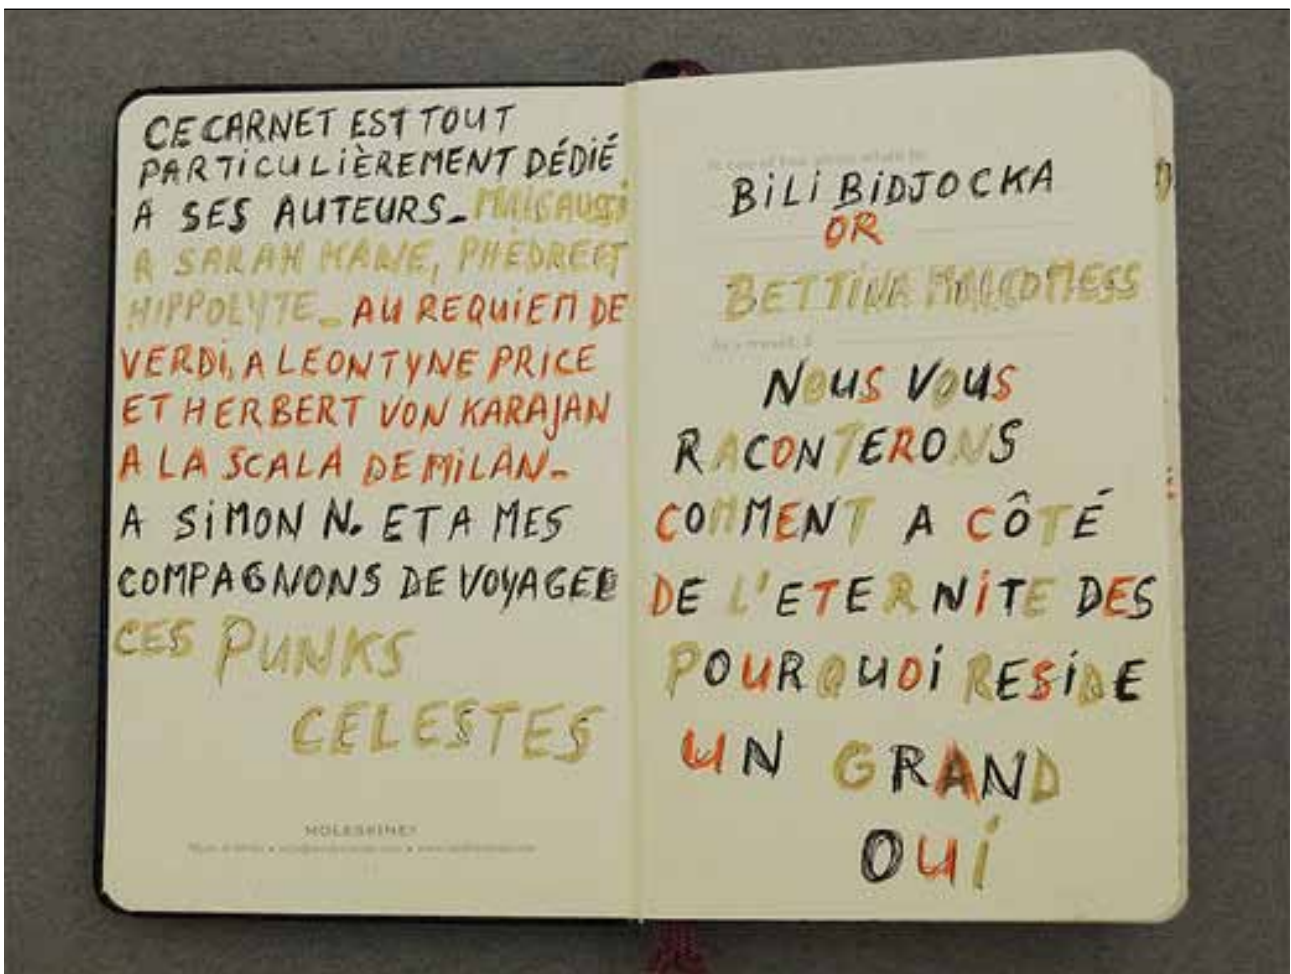 CE CARNET EST TOUT
PARTICULIÈREMENT DÉDIÉ
A SES AUTEURS_ MAIS AUSSI
A SARAH KANE, PHÈDRE ET
HIPPOLYTE_ AU REQUIEM DE
VERDI, A LEONTYNE PRICE
ET HERBERT VON KARAJAN
A LA SCALA DE MILAN_
A SIMON N. ET A MES
COMPAGNONS DE VOYAGE
CES PUNKS
CELESTES
MOLESKINE®
In case of loss, please return to:
BILI BIDJOCKA
OR
BETTINA MALCOMESS
As a reward: $
NOUS VOUS
RACONTERONS
COMMENT A CÔTÉ
DE L'ETERNITE DES
POURQUOI RESIDE
UN GRAND
OUI